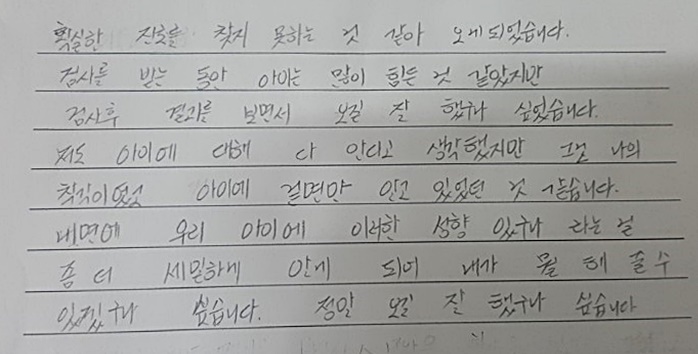 확실한 진로를 찾지 못하는 것 같아 오게되었습니다.
검사를 받는 동안 아이는 많이 힘든 것 같았지만
검사후 결과를 보면서 오길 잘 했구나 싶었습니다.
저도 아이에 대해 다 안다고 생각했지만 그건 나의
착각이였고 아이에 겉면만 알고 있었던 것 같습니다.
내면에 우리 아이에 이러한 성향 있구나 라는 걸
좀 더 세밀하게 알게 되어 내가 뭘 해 줄 수
있겠구나 싶습니다. 정말 오길 잘 했구나 싶습니다